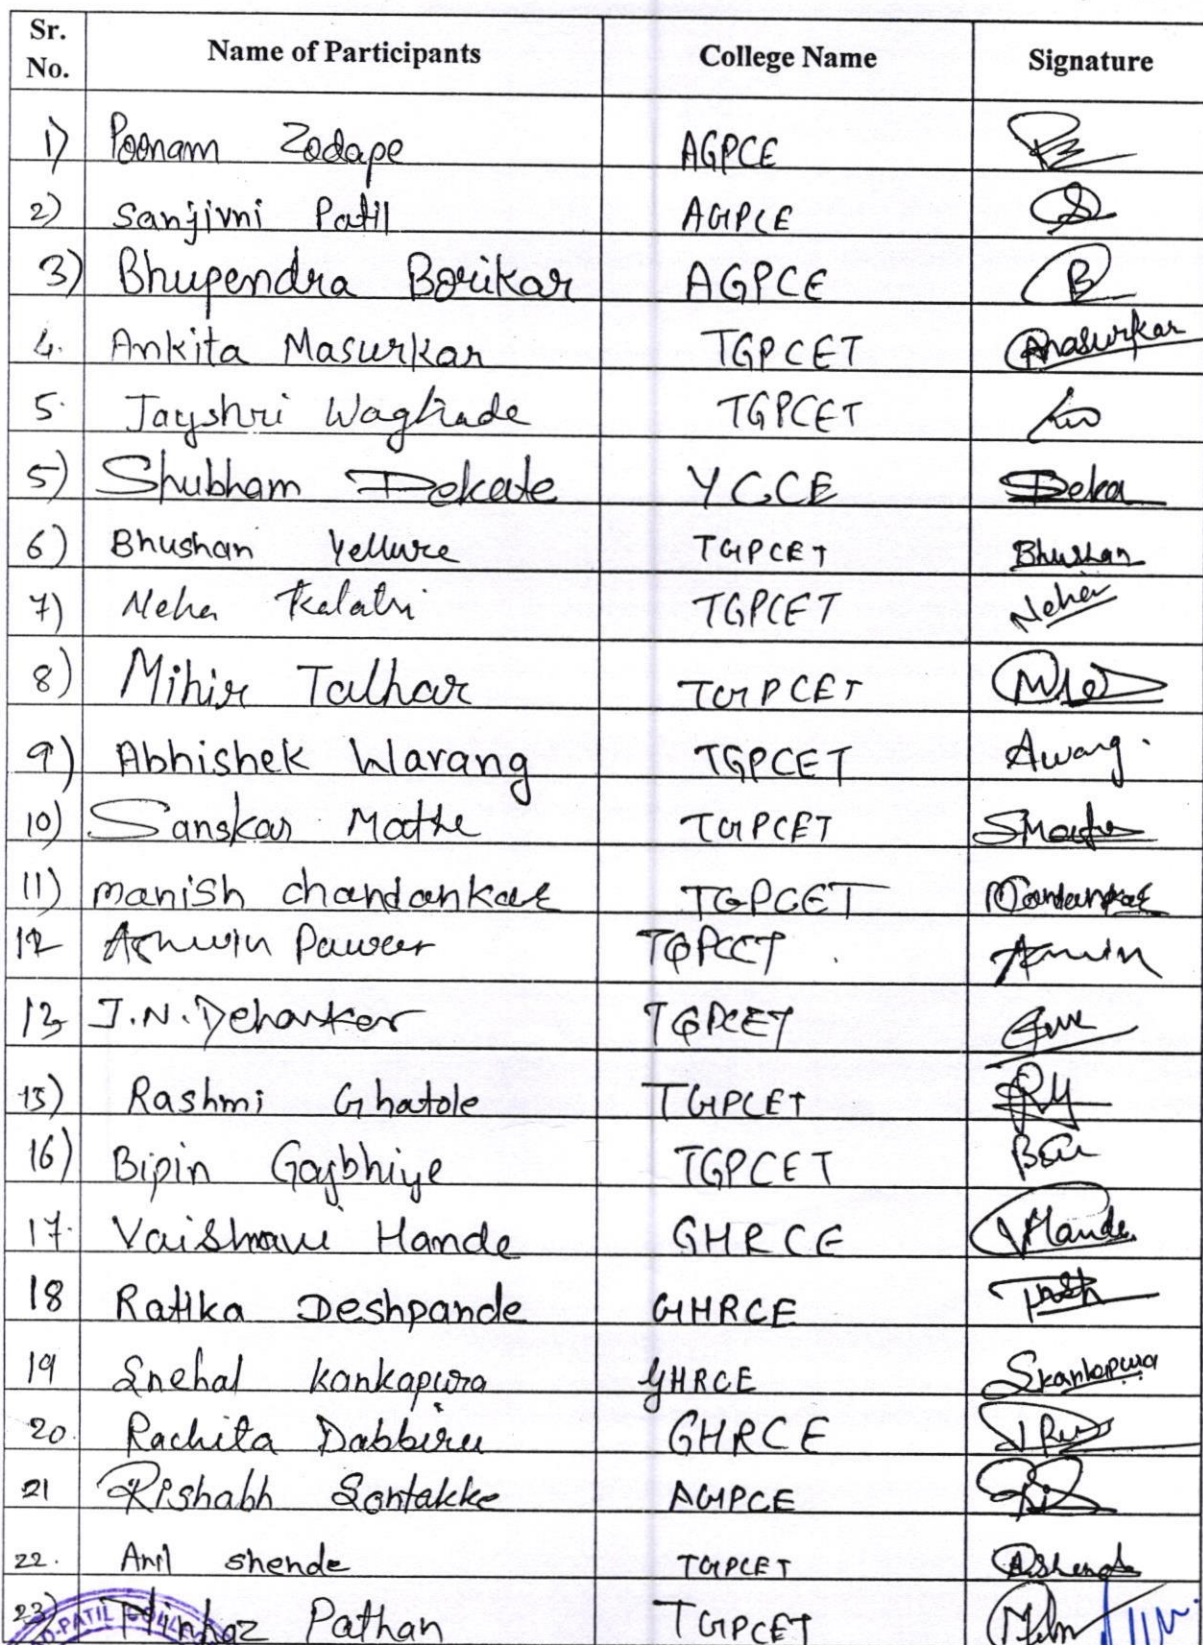 Sr. No. Name of Participants College Name Signature
1) Poonam Zodape AGPCE
2) Sanjivni Patil AGPCE
3) Bhupendra Borikar AGPCE B
4. Ankita Masurkar TGPCET Amasurkar
5. Jayshri Waghade TGPCET
5) Shubham Dekate YCCE Deka
6) Bhushan Yellure TGPCET Bhushan
7) Neha Kalatri TGPCET Neha
8) Mihir Talhar TGPCET
9) Abhishek Warang TGPCET Awang.
10) Sanskar Mathe TGPCET SMathe
11) Manish chandankar TGPCET
12 Ashwin Pawar TGPCET
13 J.N. Dehankar TGPCET
15) Rashmi Ghatole TGPCET
16) Bipin Gaybhiye TGPCET
17. Vaishnavi Hande GHRCE VHande
18 Ratika Deshpande GHRCE
19 Snehal kankapura GHRCE Skankapura
20. Rachita Dabbiru GHRCE
21 Rishabh Sontakke AGPCE
22. Anil shende TGPCET AShende
23) Pathan TGPCET
PATIL COLLE